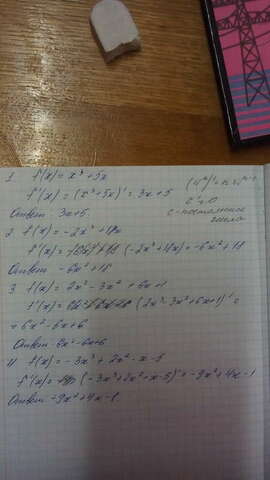 1 f(x) = x³ + 5x
f'(x) = (x³+5x)' = 3x + 5
(xⁿ)' = n·xⁿ⁻¹
c' = 0
Ответ 3x+5
c - постоянное
число
2 f(x) = -2x³ + 18x
f'(x) = (-2x³+18x) = -6x² + 18
Ответ -6x² + 18
3 f(x) = 2x³ - 3x² + 6x + 1
f'(x) = (2x³ - 3x² + 6x + 1)' =
= 6x² - 6x + 6
Ответ 6x² - 6x + 6
4 f(x) = -3x³ + 2x² - x - 5
f'(x) = (-3x³ + 2x² - x - 5)' = -9x² + 4x - 1
Ответ -9x² + 4x - 1